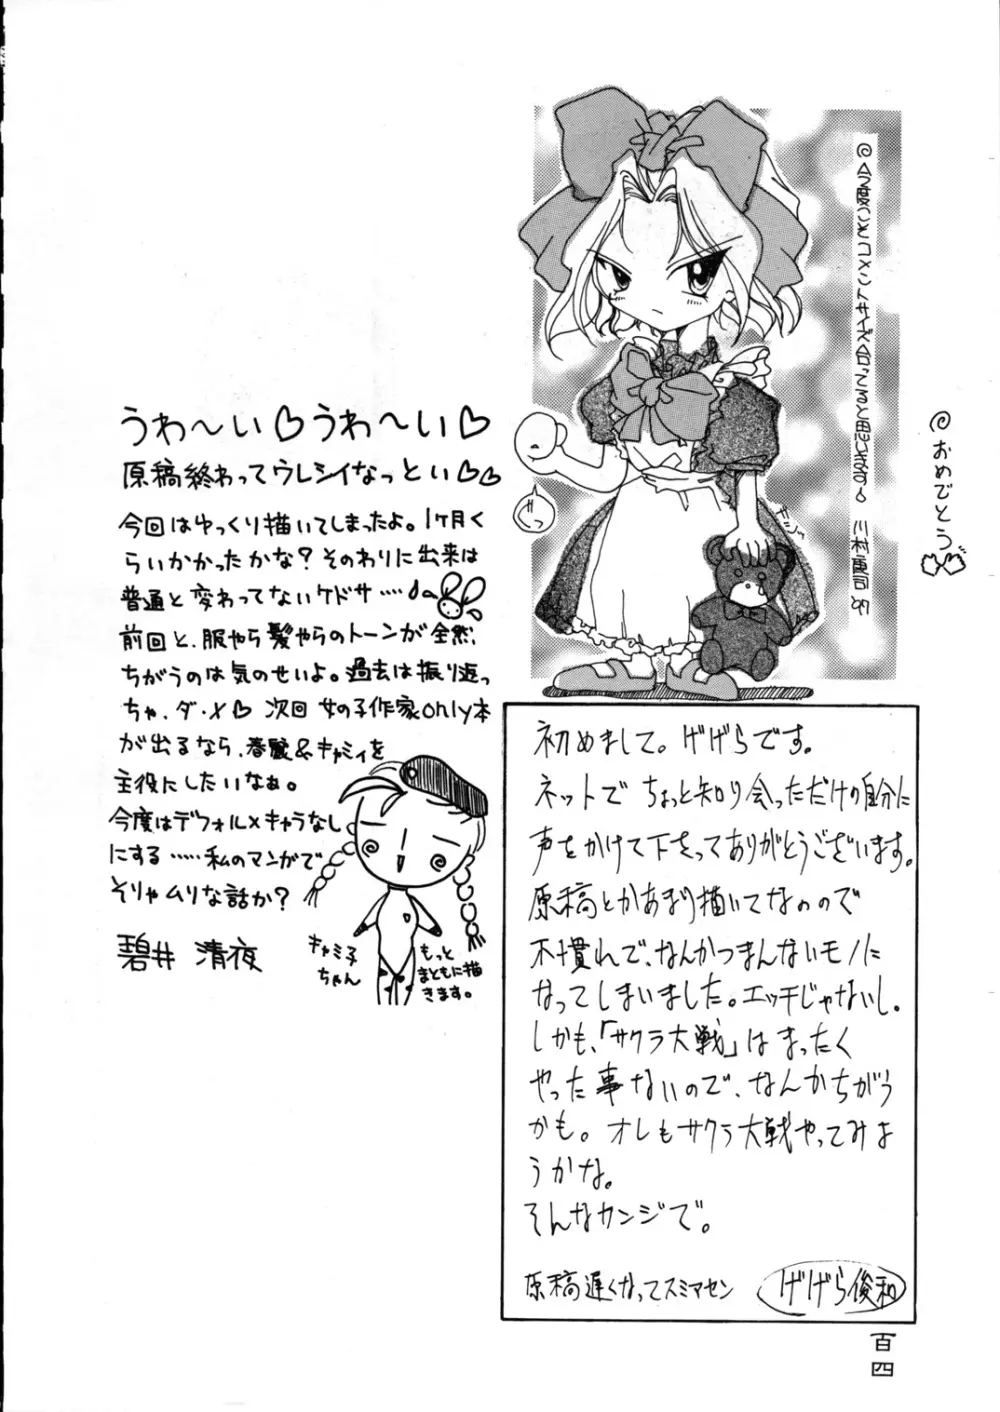 ◎今度こそコメントサイズ合ってると思います。 川村康司 '97
◎おめでとう
ギュッ
うわ〜い♡うわ〜い♡
原稿終わってウレシイなっとい♡♡
今回はゆっくり描いてしまったよ。1ヶ月く
らいかかったかな?そのわりに出来は
普通と変わってないケドサ……
前回と、服やら髪やらのトーンが全然、
ちがうのは気のせいよ。過去は振り返っ
ちゃ、ダ・メ♡ 次回 女の子作家only本
が出るなら、春麗&キャミィを
主役にしたいなぁ。
今度はデフォルメキャラなし
にする……私のマンガで
そりゃムリな話か?
碧井 清夜
キャミ子
ちゃん
もっと
まともに描
きます。
初めまして。げげらです。
ネットで ちょっと知り会っただけの自分に
声をかけて下さってありがとうございます。
原稿とかあまり描いてないので
不慣れで、なんかつまんないモノに
なってしまいました。エッチじゃないし。
しかも、「サクラ大戦」はまったく
やった事ないので、なんかちがう
かも。オレもサクラ大戦やってみよ
うかな。
そんなカンジで。
原稿遅くなってスミマセン
げげら俊和
百
四